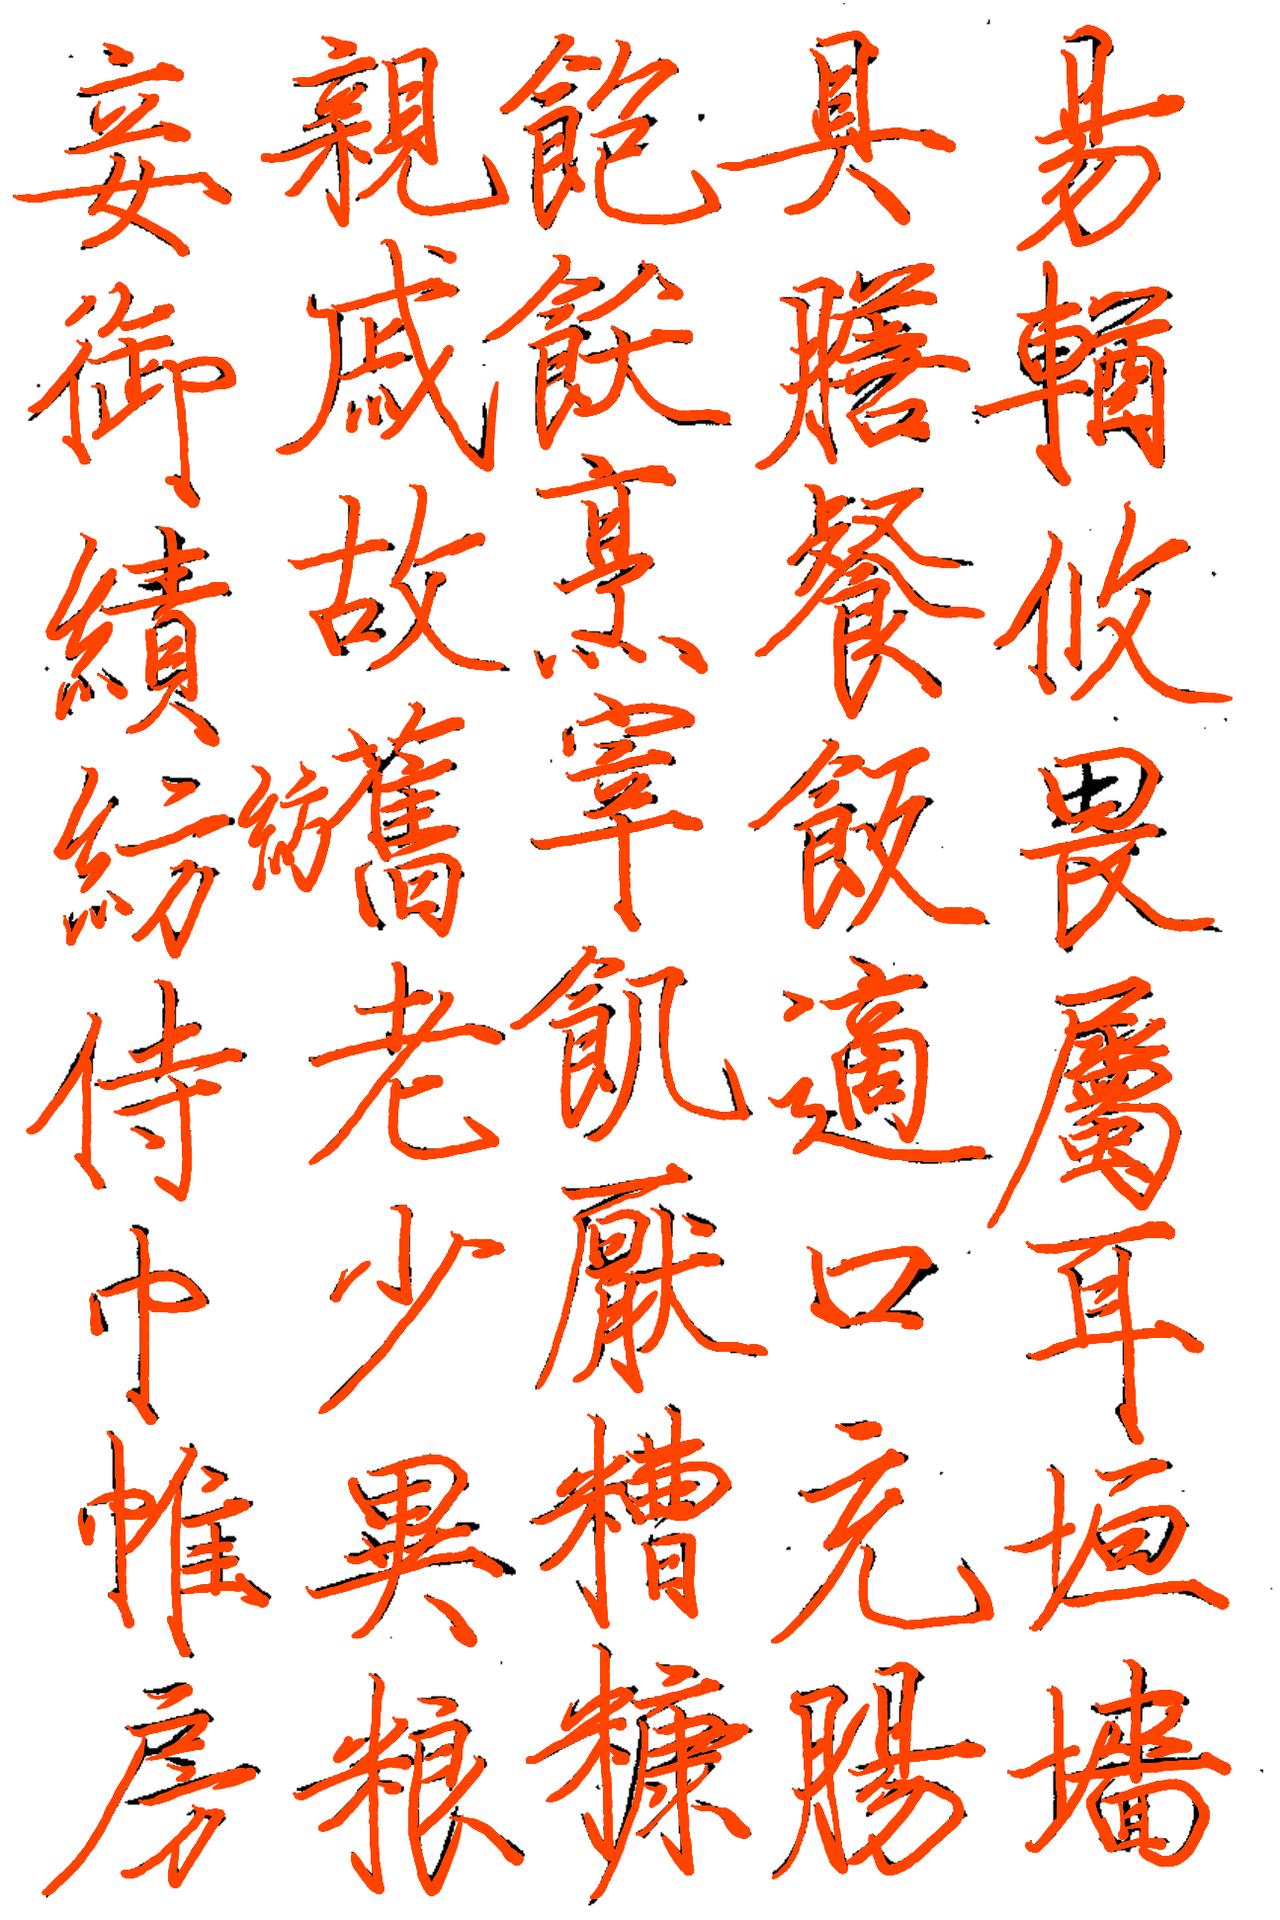 易輶攸畏屬耳垣墻
具膳餐飯適口充腸
飽飫烹宰飢厭糟糠
親戚故舊老少異粮
妾御績紡侍巾帷房
紡